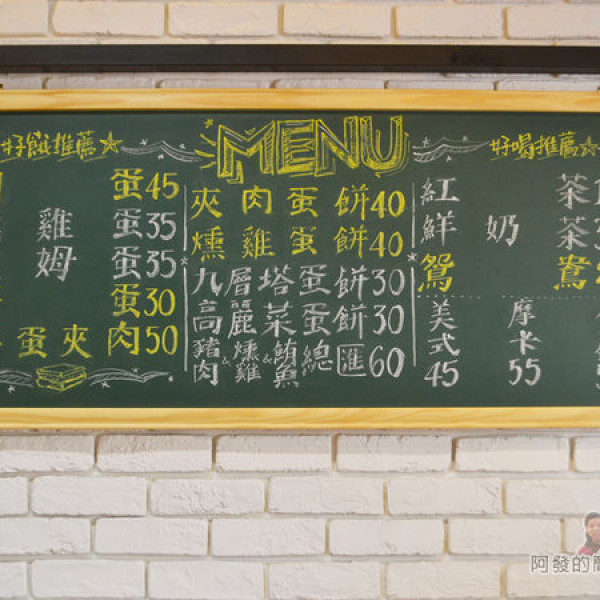 MENU
好餓推薦☆
蛋45
雞 蛋35
姆 蛋35
蛋30
蛋夾肉50
夾肉蛋餅40
燻雞蛋餅40
九層塔蛋餅30
高麗菜蛋餅30
豬肉&燻雞&鮪魚總匯60
好喝推薦☆
紅 茶
鮮奶茶
鴛鴦
美式45
摩卡55
阿發的